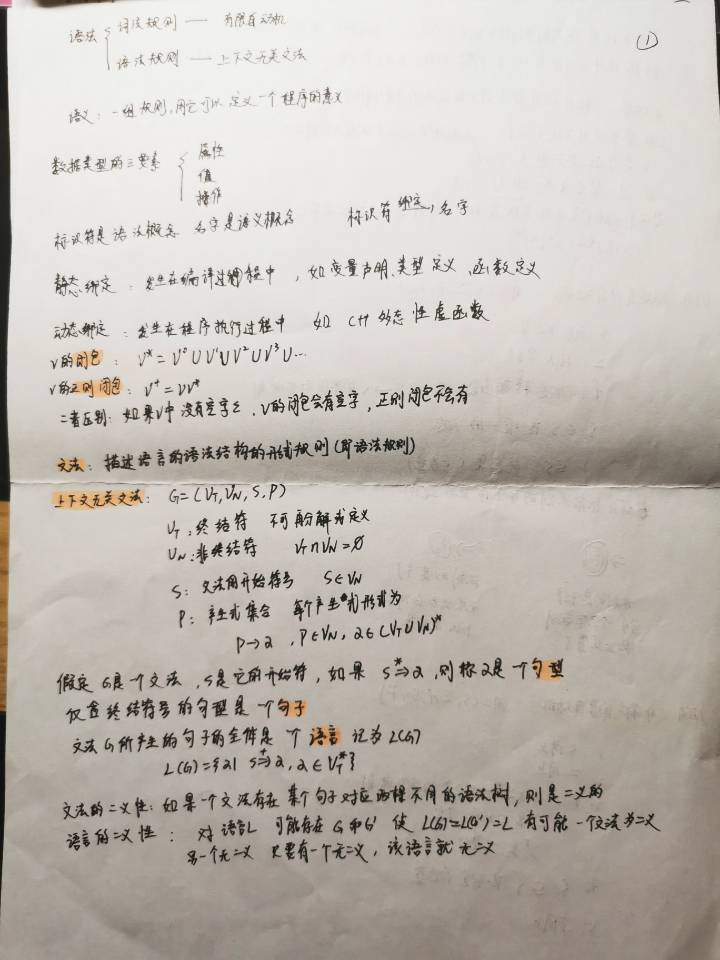 ①
语法 { 词法规则 —— 有限自动机
语法规则 —— 上下文无关文法
语义：一组规则，用它可以定义一个程序的意义
数据类型的三要素 { 属性
值
操作
标识符是语法概念 名字是语义概念 标识符 绑定→ 名字
静态绑定：发生在编译过程中，如变量声明、类型定义、函数定义
动态绑定：发生在程序执行过程中 如 C++ 多态性虚函数
V的闭包：V* = V⁰∪V¹∪V²∪V³∪…
V的正则闭包：V⁺ = VV*
二者区别：如果V中没有空字ε，V的闭包会有空字，正则闭包不会有
文法：描述语言的语法结构的形式规则(即语法规则)
上下文无关文法：G=(V_T, V_N, S, P)
V_T：终结符 不可再分解或定义
V_N：非终结符 V_T∩V_N=∅
S：文法开始符号 S∈V_N
P：产生式集合 每个产生式形式为
P→α，P∈V_N，α∈(V_T∪V_N)*
假定G是一个文法，S是它的开始符，如果 S*⇒α，则称α是一个句型
仅含终结符号的句型是一个句子
文法G所产生的句子的全体是一个语言 记为L(G)
L(G)={α| S⁺⇒α, α∈V_T*}
文法的二义性：如果一个文法存在某个句子对应两棵不同的语法树，则是二义的
语言的二义性：对语言L 可能存在G和G' 使 L(G)=L(G')=L 有可能一个文法为二义
另一个无二义 只要有一个无二义，该语言就无二义